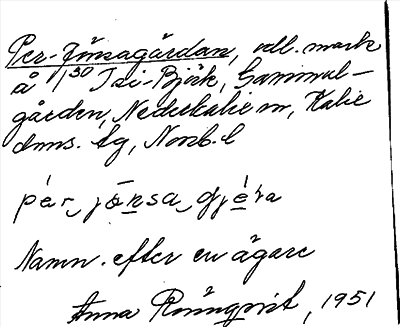 Per-Jönsagärdan, odl. mark
å 1/30 Tri-Björk, Gammel-
gården, Nederkalix sn, Kalix
dnns. tg, Norrb. l
pèr jönsa gjéra
Namn efter en ägare
Anna Rönnqvist, 1951